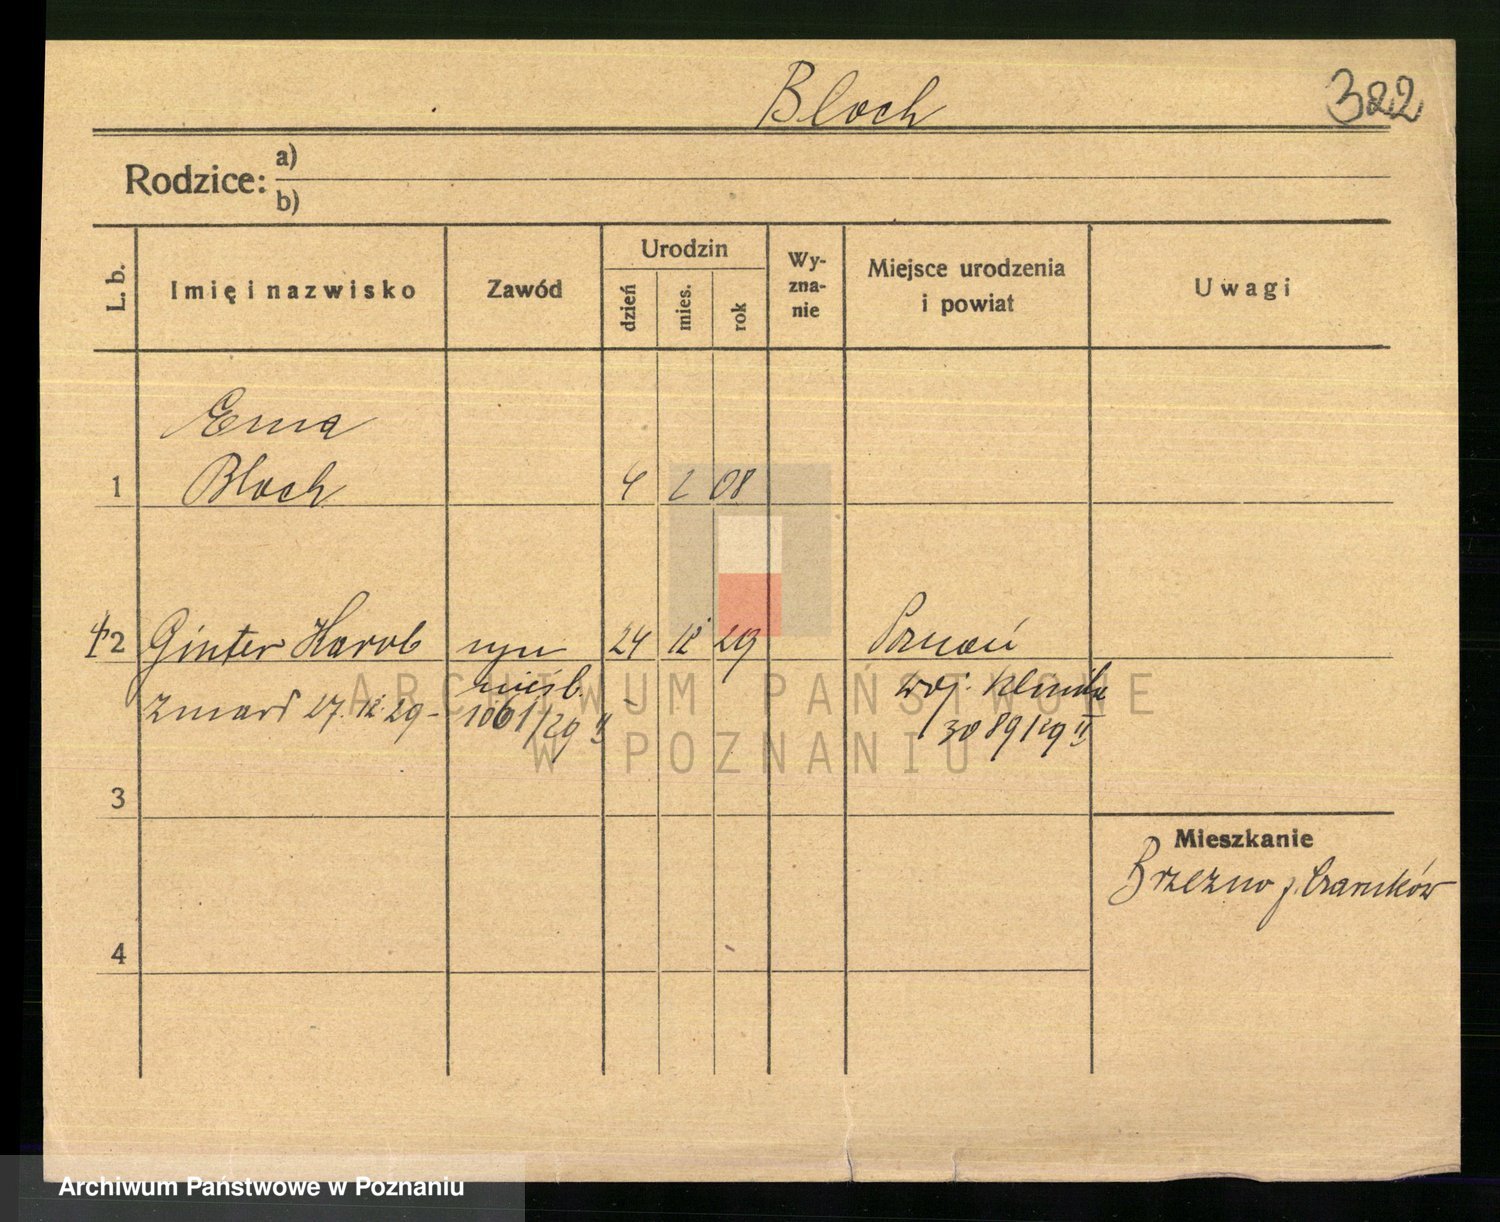 Bloch
322
Rodzice: a)
b)
L. b.
Imię i nazwisko
Zawód
Urodzin
dzień
mies.
rok
Wy-
zna-
nie
Miejsce urodzenia
i powiat
Uwagi
Erna
1 Bloch 4 2 08
2 Ginter Karol syn 24 12 29 Poznań
nieśl. woj. Klinika
zmarł 27.12.29 - 1061/29 II 3089/29 II
3
Mieszkanie
Brzezno p. Czarnków
4
ARCHIWUM PAŃSTWOWE
W POZNANIU
Archiwum Państwowe w Poznaniu